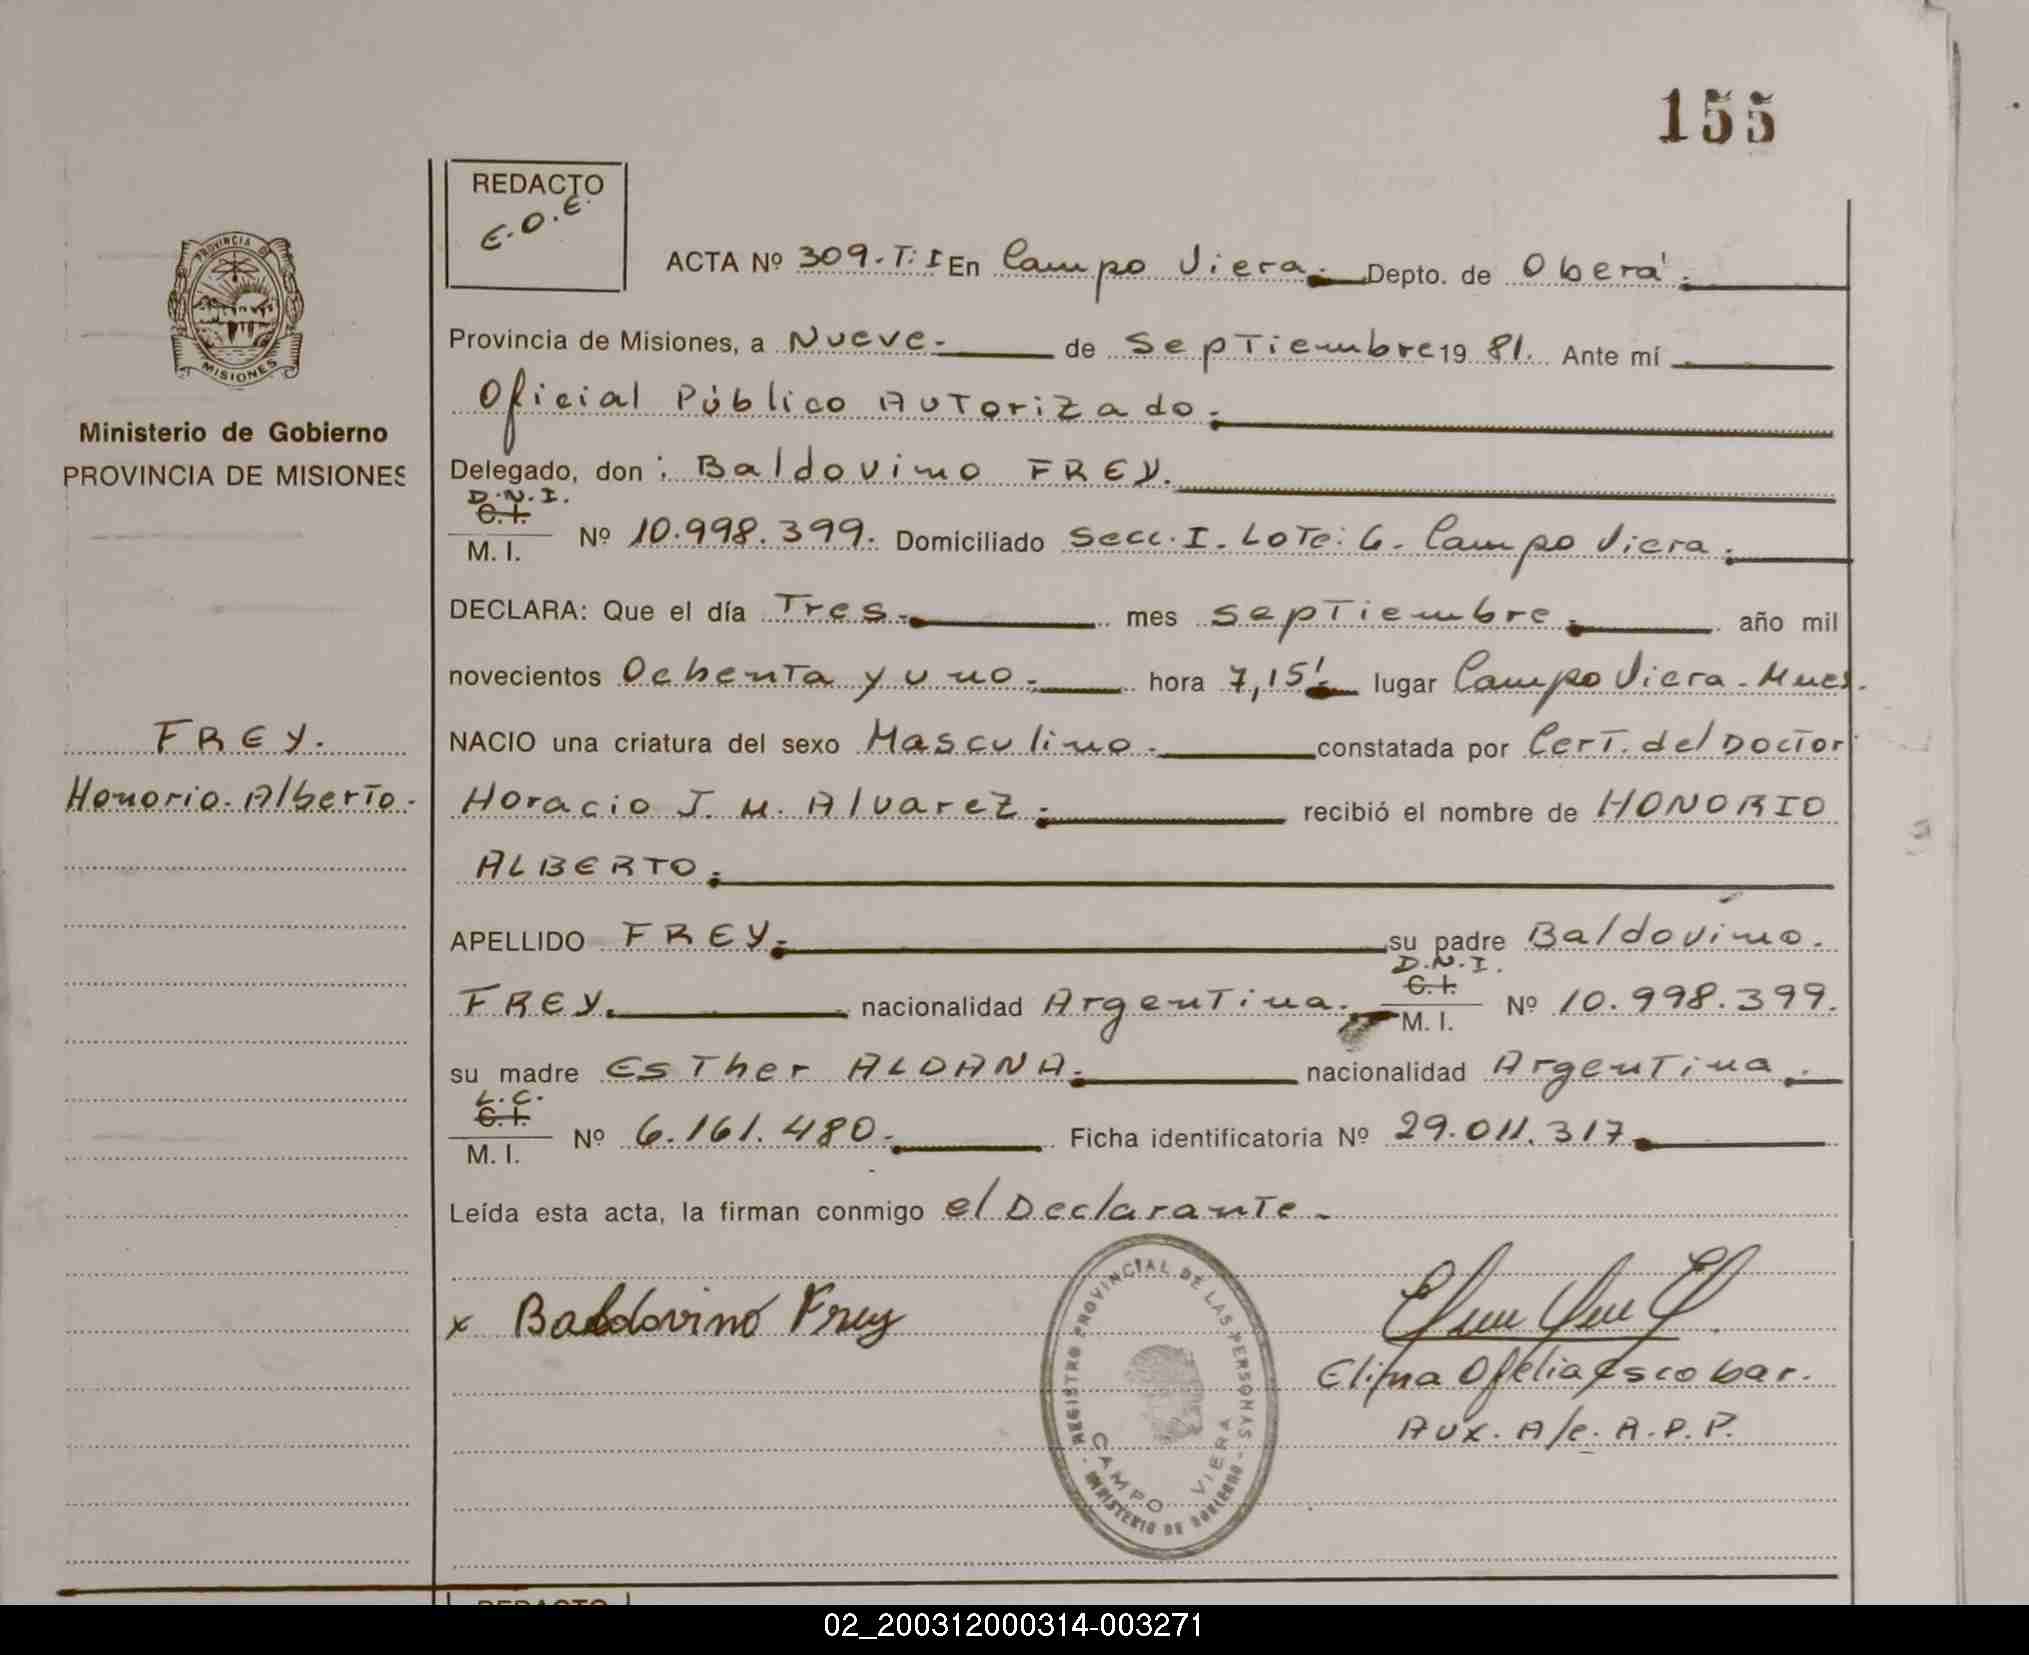 155
REDACTO
E.O.E.
PROVINCIA DE
MISIONES
Ministerio de Gobierno
PROVINCIA DE MISIONES
FREY.
Honorio. Alberto.
ACTA Nº 309. T: I En Campo Viera. Depto. de Oberá.
Provincia de Misiones, a Nueve. de Septiembre 19 81. Ante mí
Oficial Público Autorizado.
Delegado, don : Baldovino FREY.
D.N.I.
C.I.
M. I. Nº 10.998.399. Domiciliado Secc. I. Lote: 6. Campo Viera.
DECLARA: Que el día Tres. mes septiembre. año mil
novecientos Ochenta y uno. hora 7,15'. lugar Campo Viera - Mnes.
NACIO una criatura del sexo Masculino. constatada por Cert. del Doctor
Horacio J. M. Alvarez. recibió el nombre de HONORIO
ALBERTO.
APELLIDO FREY. su padre Baldovino.
D.N.I.
C.I.
FREY. nacionalidad Argentina. M. I. Nº 10.998.399.
su madre Esther ALDANA. nacionalidad Argentina.
L.C.
C.I.
M. I. Nº 6.161.480. Ficha identificatoria Nº 29.011.317.
Leída esta acta, la firman conmigo el Declarante.
x Baldovino Frey
REGISTRO PROVINCIAL DE LAS PERSONAS
CAMPO VIERA
MINISTERIO DE GOBIERNO
Elima Ofelia Escobar.
Aux. A/c. R.P.P.
REDACTO
02_200312000314-003271